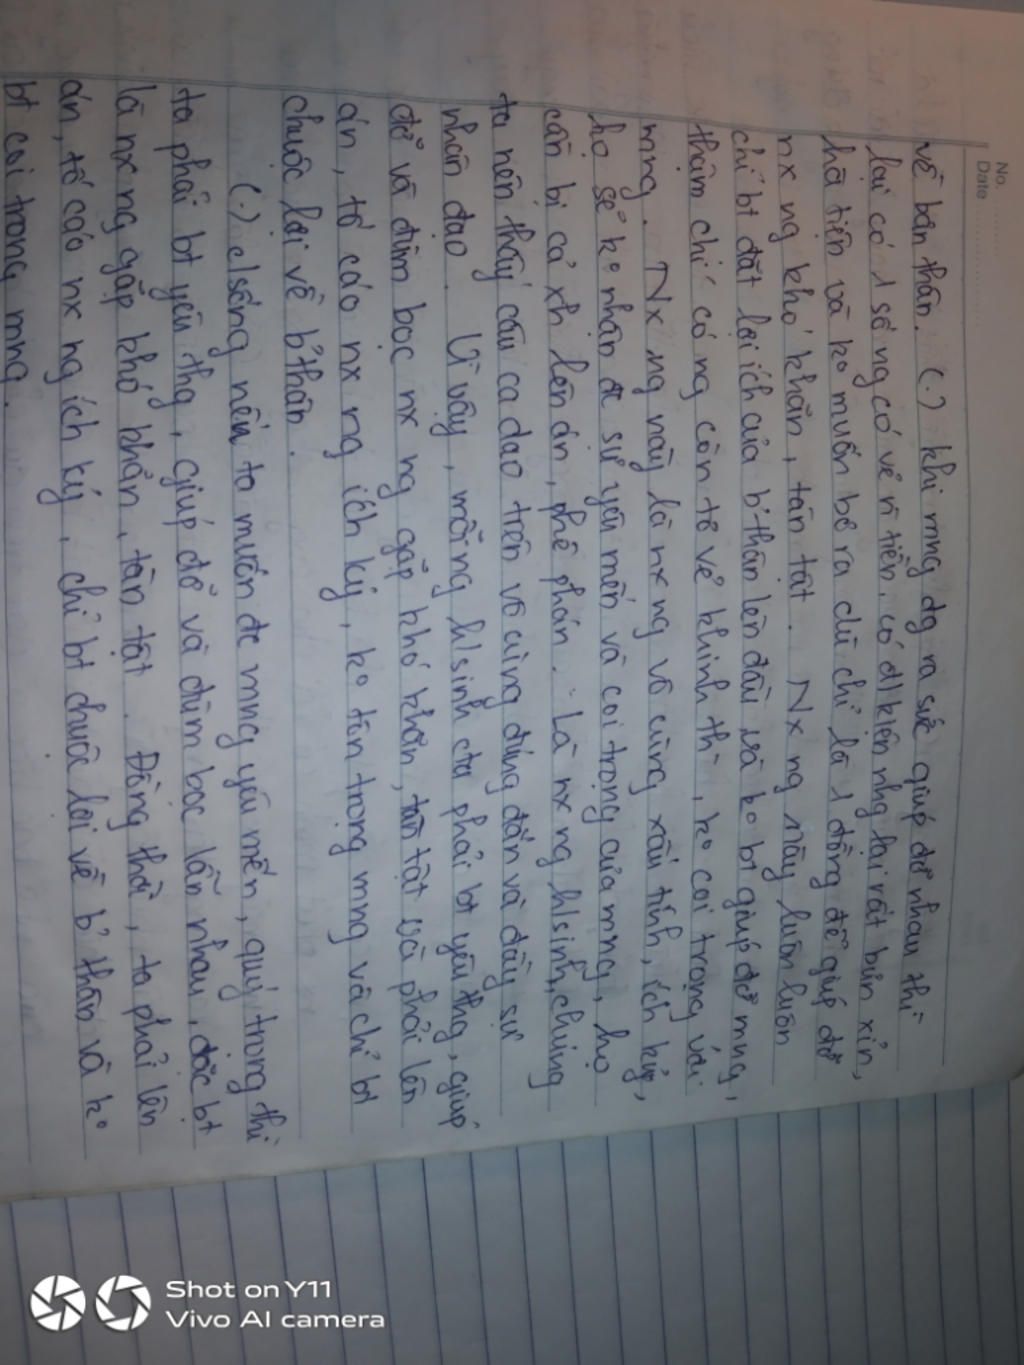 No.
Date
về bản thân. (.) khi mng dg ra sức giúp đỡ nhau thì
lại có 1 số ng có vẻ nh tiền, có đ/kiện nhg lại rất bủn xỉn,
hà tiện và ko muốn bỏ ra dù chỉ là 1 đồng để giúp đỡ
nx ng khó khăn, tàn tật. Nx ng này luôn luôn
chỉ bt đặt lợi ích của b' thân lên đầu và ko bt giúp đỡ mng,
thậm chí có ng còn tỏ vẻ khinh th, ko coi trọng với
mng. Nx ng này là nx ng vô cùng xấu tính, ích kỷ,
họ sẽ ko nhận đc sự yêu mến và coi trọng của mng, họ
cần bị cả xh lên án, phê phán. Là nx ng h/sinh, chúng
ta nên thấy câu ca dao trên vô cùng đúng đắn và đầy sự
nhân đạo. Vì vậy, mỗi ng h/sinh cta phải bt yêu thg, giúp
đỡ và đùm bọc nx ng gặp khó khăn, tàn tật và phải lên
án, tố cáo nx ng ích kỷ, ko tôn trọng mng và chỉ bt
chuộc lợi về b' thân.
(.) c/sống nếu ta muốn đc mng yêu mến, quý trọng thì
ta phải bt yêu thg, giúp đỡ và đùm bọc lẫn nhau, đặc bt
là nx ng gặp khó khăn, tàn tật. Đồng thời, ta phải lên
án, tố cáo nx ng ích kỷ, chỉ bt chuộc lợi về b' thân và ko
bt coi trọng mng.
Shot on Y11
Vivo AI camera